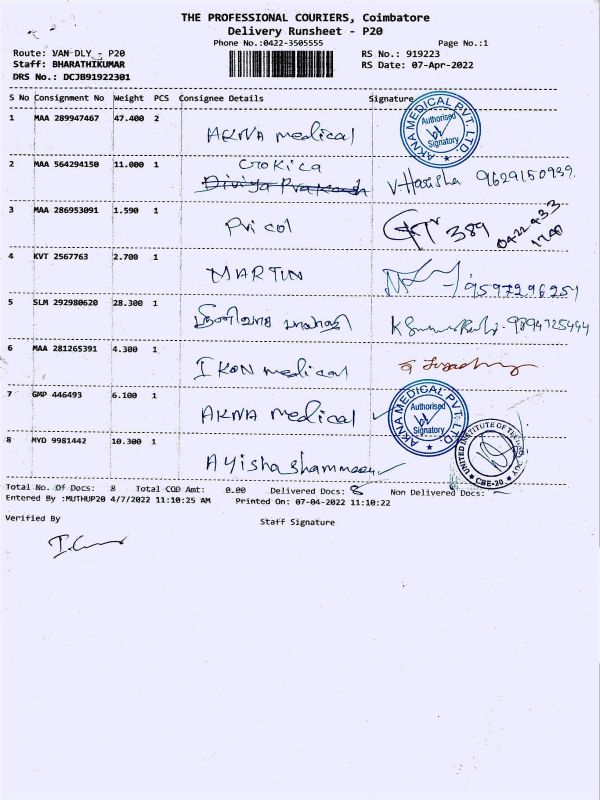 THE PROFESSIONAL COURIERS, Coimbatore
Delivery Runsheet - P20
Phone No.:0422-3505555
Page No.:1
Route: VAN DLY - P20
RS No.: 919223
Staff: BHARATHIKUMAR
RS Date: 07-Apr-2022
DRS No.: DCJB91922301
S No Consignment No Weight PCS Consignee Details Signature
1 MAA 289947467 47.400 2 AKNA medical
AKNA MEDICAL PVT. LTD. Authorised Signatory
2 MAA 564294150 11.000 1 V. Harisha 9629150939
3 MAA 286953091 1.590 1 Pricol 389 0422 433
4 KVT 2567763 2.700 1 MARTIN 9597296254
5 SLM 292980620 28.300 1
6 MAA 281265391 4.300 1 IKON medical
7 GMP 446493 6.100 1 AKNA medical
AKNA MEDICAL PVT. LTD. Authorised Signatory
8 MYD 9981442 10.300 1 Ayisha shammeem
UNITED INSTITUTE OF CBE-20
Total No. Of Docs: 8 Total COD Amt: 0.00 Delivered Docs: 8 Non Delivered Docs: -
Entered By :MUTHUP20 4/7/2022 11:10:25 AM Printed On: 07-04-2022 11:10:22
Verified By Staff Signature